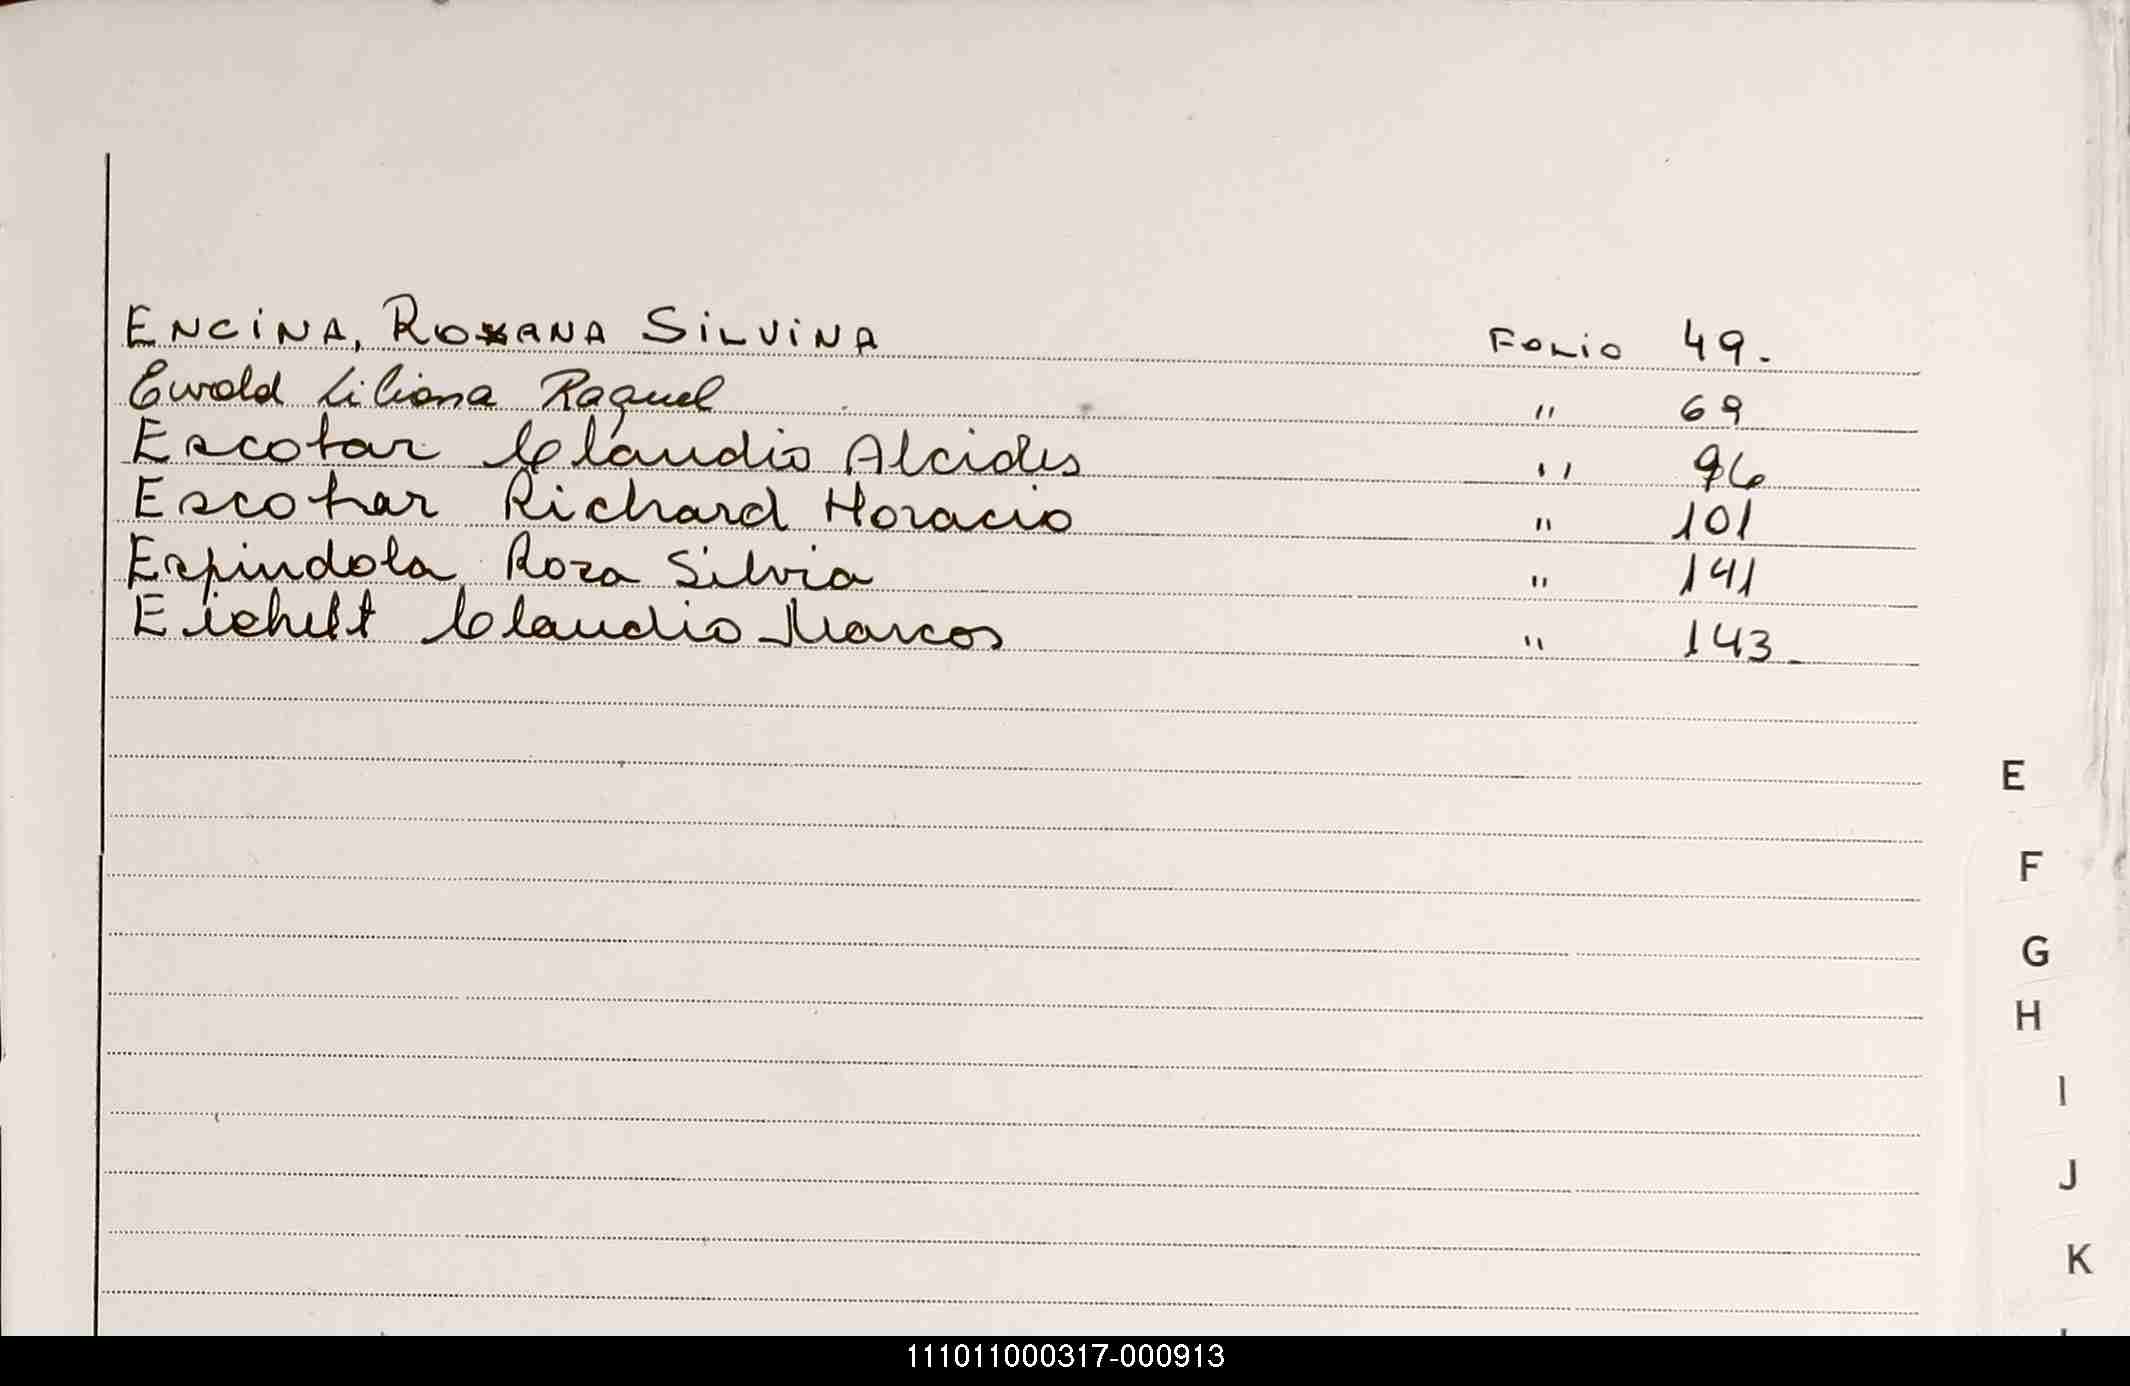 ENCINA, ROXANA SILVINA Folio 49.
Ewald Liliana Raquel " 69
Escobar Claudio Alcides " 96
Escobar Richard Horacio " 101
Espindola Rosa Silvia " 141
Eichelt Claudio Marcos " 143
E
F
G
H
I
J
K
111011000317-000913